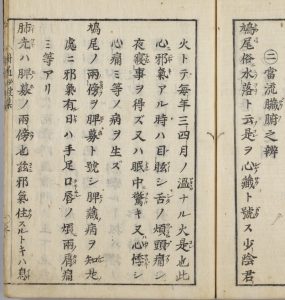 ㊁當流臟腑之辨
鳩尾俗水落ト云是ヲ心藏ト號ス少陰君
火トテ毎年三四月ノ溫ナル火是也此
心邪氣アル時ハ目眩シ舌ノ煩頭痛シ
夜寢事ヲ得ズ又ハ眠中驚キ又心悸シ
心痛ミ等ノ病ヲ生ズ
鳩尾ノ兩傍ヲ脾募ト號シ脾藏病ヲ知是
處ニ邪氣有日ハ手足口唇ノ煩兩肩痛
ミ等アリ
肺先ハ脾募ノ兩傍也茲邪氣住スルトキハ息